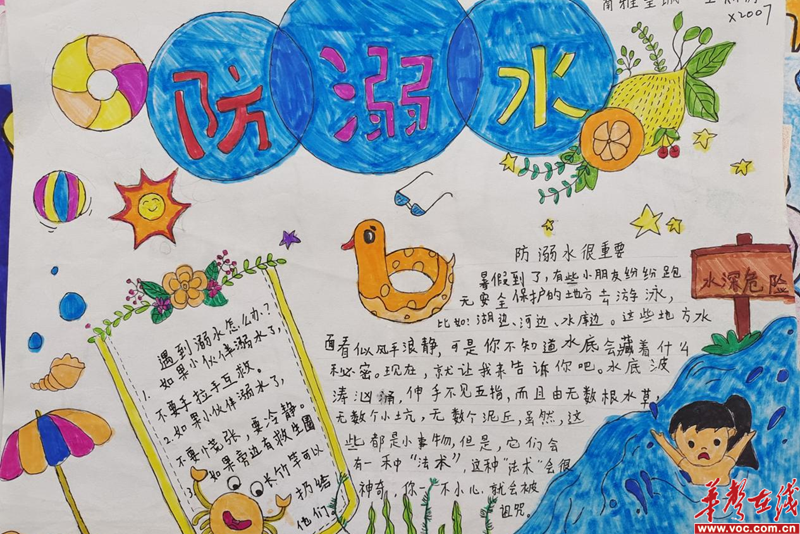 防溺水
X2007
遇到溺水怎么办?
1.如果小伙伴溺水了,
不要手拉手互救。
2.如果小伙伴溺水了,
不要慌张,要冷静。
3.如果旁边有救生圈
长竹竿可以
扔给
他们
防溺水很重要
暑假到了,有些小朋友纷纷跑
无安全保护的地方去游泳,
比如:湖边、河边、水库边。这些地方水
面看似风平浪静,可是你不知道水底会藏着什么
秘密。现在,就让我来告诉你吧。水底波
涛汹涌,伸手不见五指,而且由无数根水草,
无数个小坑,无数个泥丘,虽然,这
些都是小事物,但是,它们会
有一种“法术”,这种“法术”会很
神奇,你一不小心,就会被
诅咒。
水深危险
华声在线
www.voc.com.cn